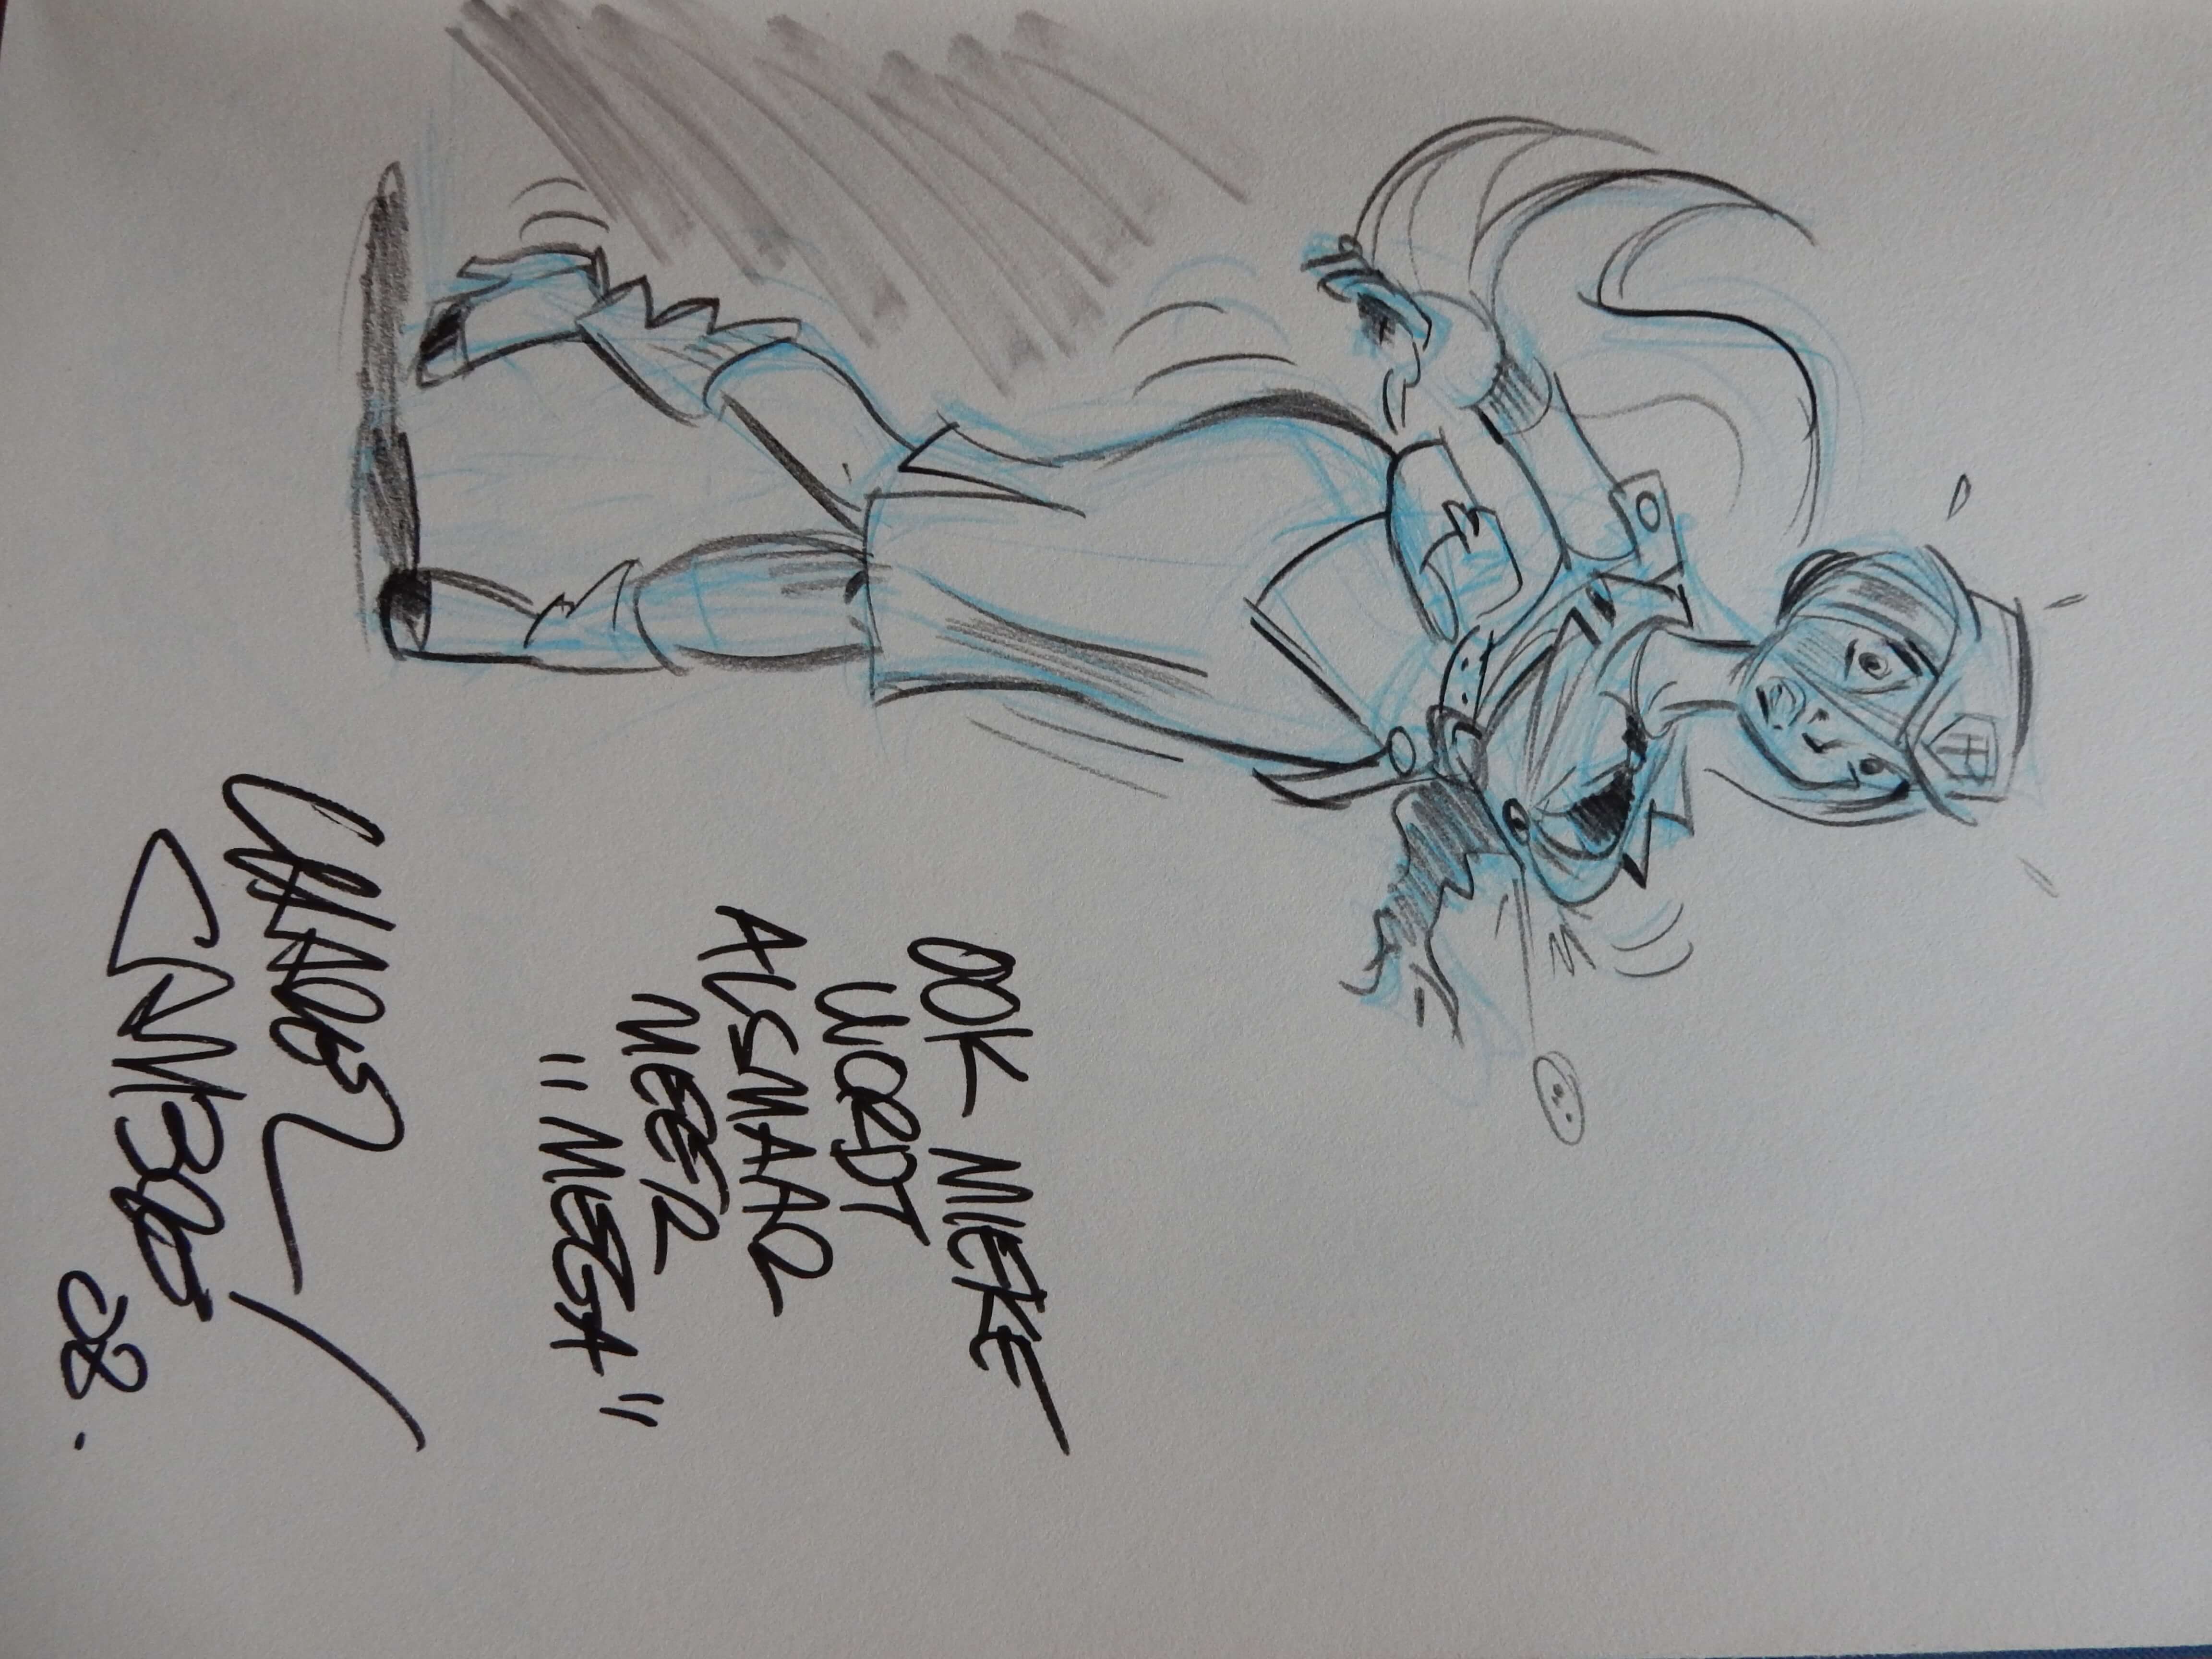 OOK MIEKE
WORDT
ALSMAAR
MEER
"MEGA"
CHAREL
CAMBRÉ
08.